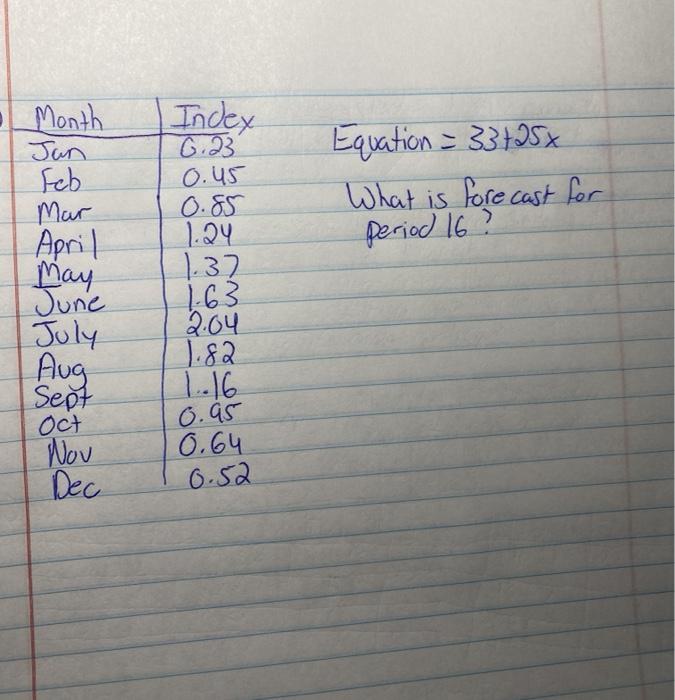 Month Index
Jan 0.23
Feb 0.45
Mar 0.85
April 1.24
May 1.37
June 1.63
July 2.04
Aug 1.82
Sept 1.16
Oct 0.95
Nov 0.64
Dec 0.52
Equation = 33+25x
What is forecast for
period 16?